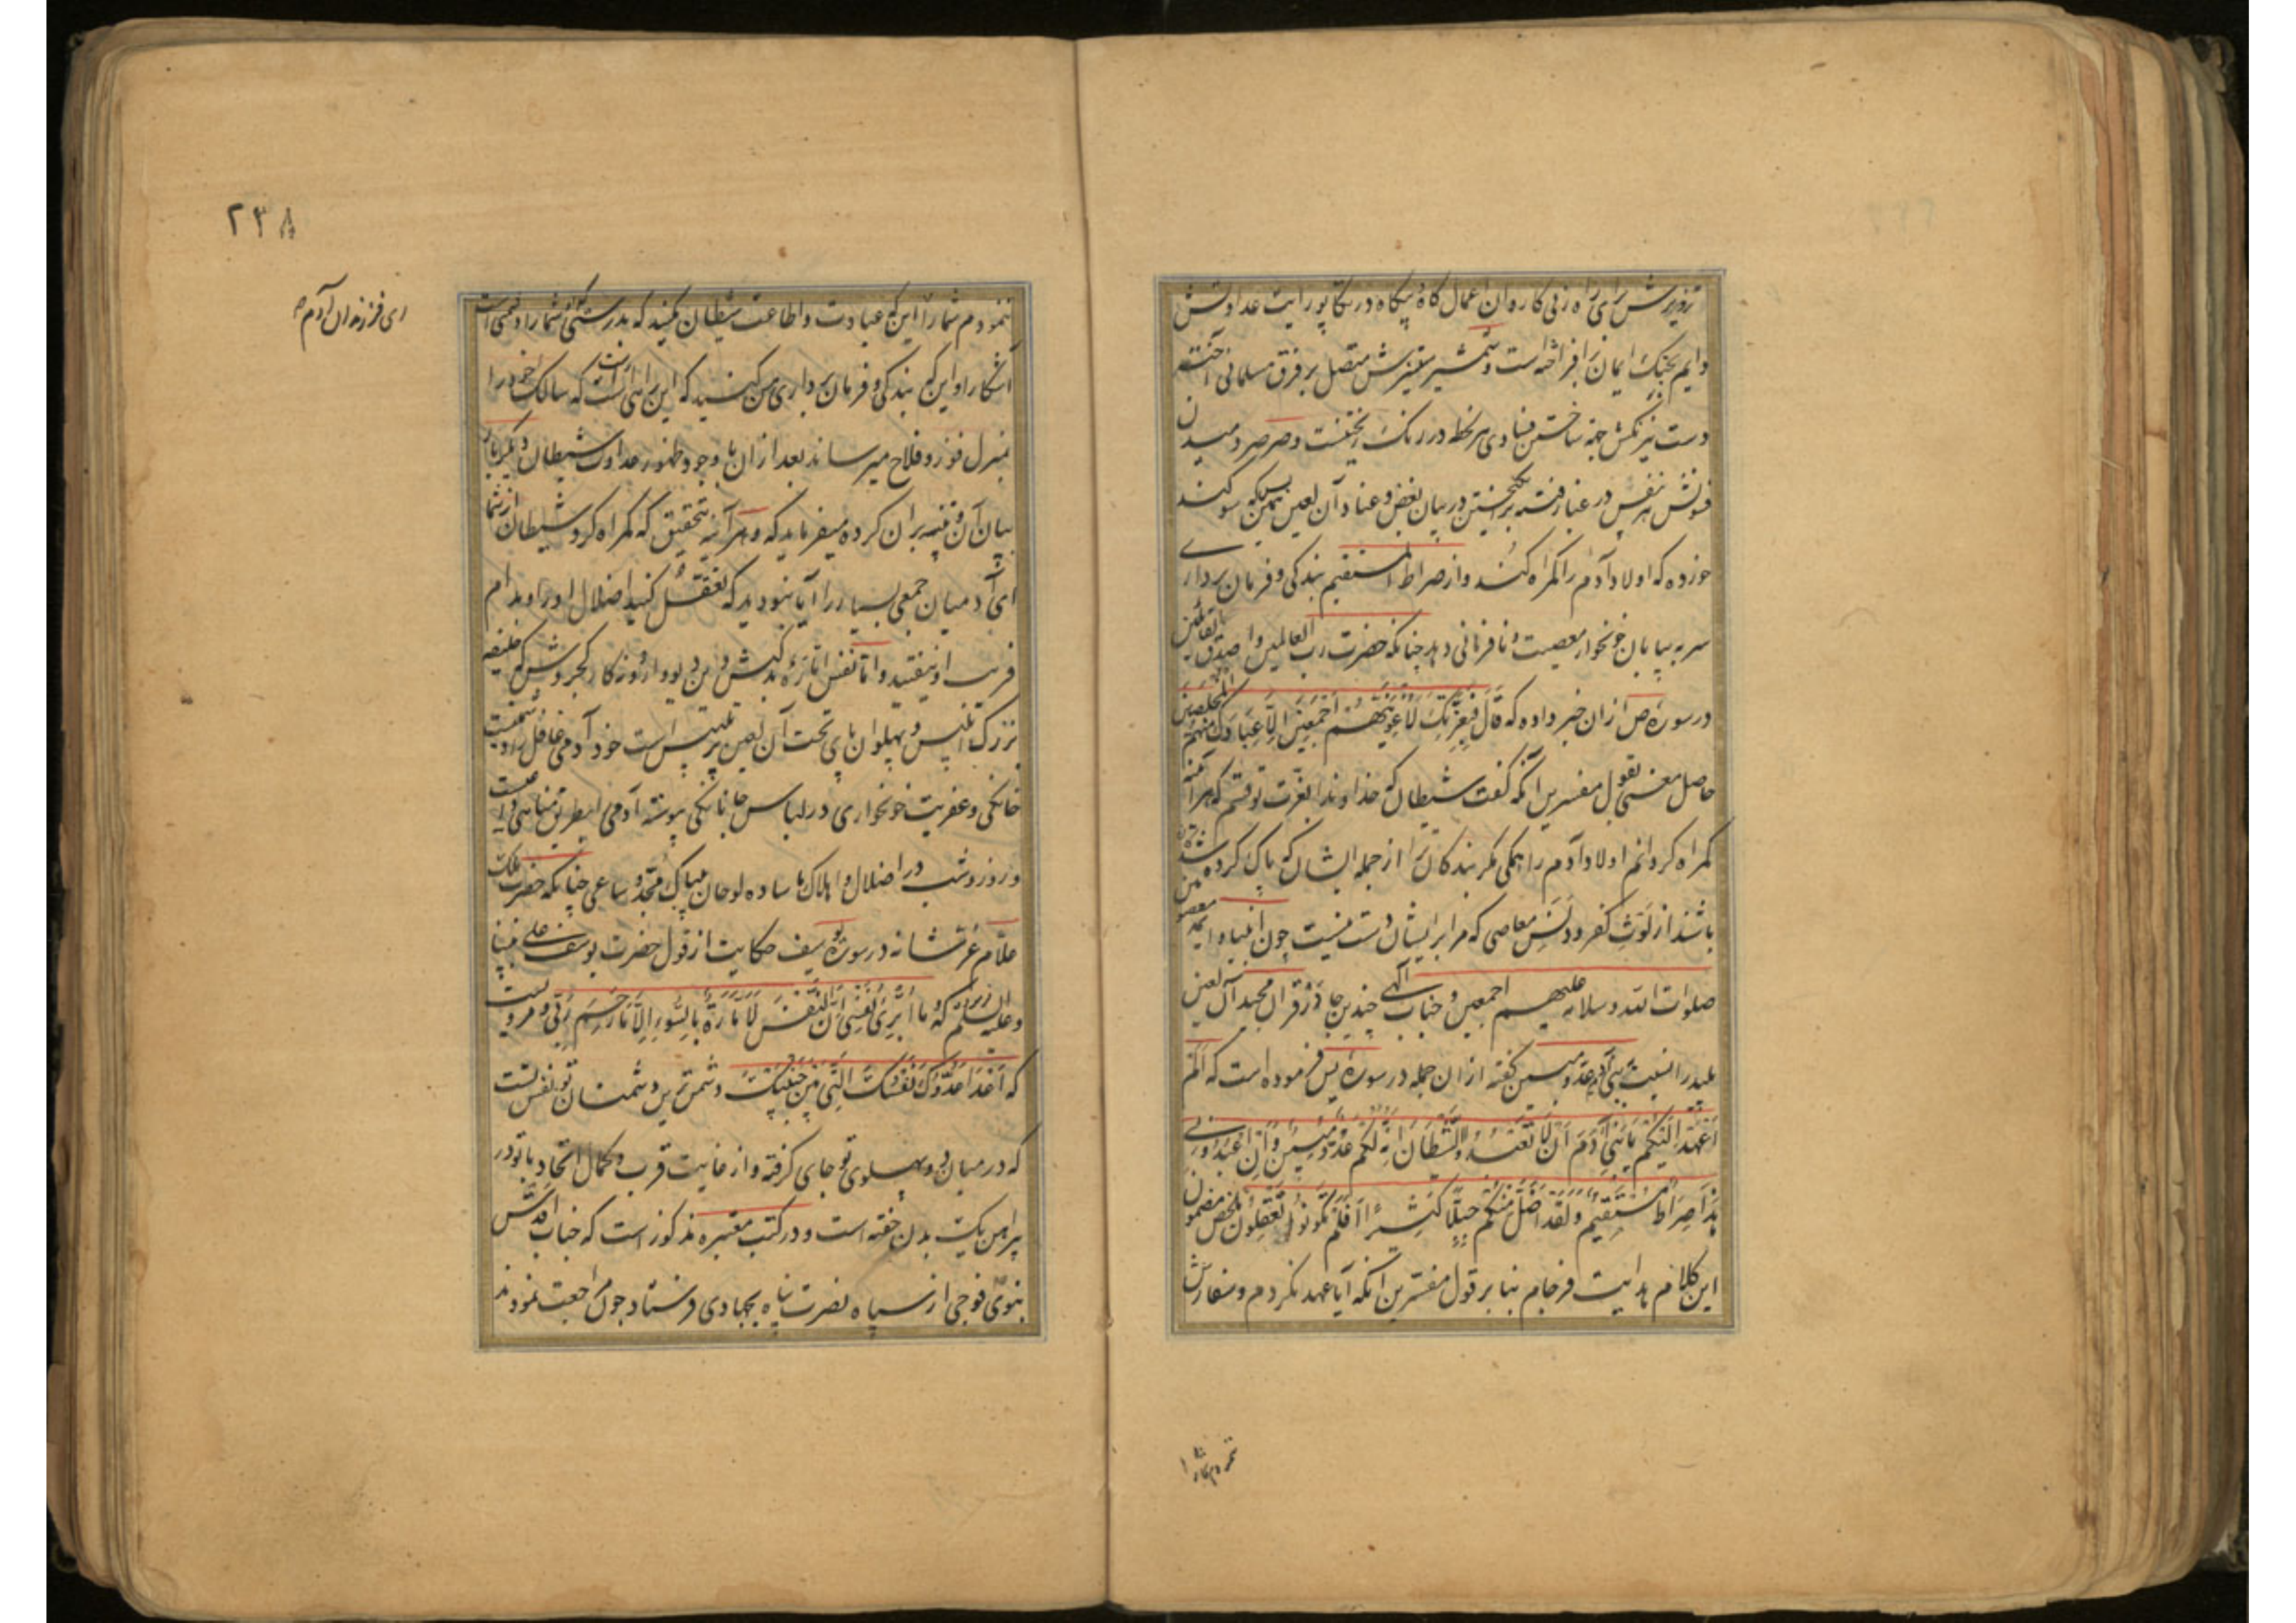 تزویرش برای راه زنی کاروان اعمال گاه و بیگاه در تکاپو رایت عداوتش
دایم بجنگ ایمان افراخته است و شمشیر ستیزش متصل بر فرق مسلمانی آخته
دست نیرنگش جهة ساختن فسادی هر لحظه در رنگ ریختنست و صرصر دمیدن
فسونش هر نفس در غبار فتنه برانگیختن در بیان بغض و عناد آن لعین همین بس که سوکند
خورده که اولاد آدم را کمراه کند و از صراط المستقیم بندکی و فرمان برداری
سر به بیابان خونخوار معصیت و نافرمانی دهد چنانکه حضرت رب العالمین و اصدق القائلین
در سورۀ ص ازان خبر داده که قَالَ فَبِعِزَّتِكَ لَأُغْوِيَنَّهُمْ أَجْمَعِينَ إِلَّا عِبَادَكَ مِنْهُمُ الْمُخْلَصِينَ
حاصل معنی بقول مفسرین آنکه کفت شیطان که خداوندا بعزت تو قسم که هر آینه
کمراه کردانم اولاد آدم را همکی مکر بندکان ترا از جمله ایشان که پاک کرده شده
باشند از لوث کفر و دنس معاصی که مرا بر ایشان دست نیست چون انبیا و ائمه معصومین
صلوات الله و سلامه علیهم اجمعین و جناب آلهی چندین جا در قرآن مجید آن لعین
پلید را نسبت به بنی آدم عدو مبین کفته ازان جمله در سورۀ یس فرموده است که أَلَمْ
أَعْهَدْ إِلَيْكُمْ يَا بَنِي آدَمَ أَنْ لَا تَعْبُدُوا الشَّيْطَانَ إِنَّهُ لَكُمْ عَدُوٌّ مُبِينٌ وَأَنِ اعْبُدُونِي
هَذَا صِرَاطٌ مُسْتَقِيمٌ وَلَقَدْ أَضَلَّ مِنْكُمْ جِبِلًّا كَثِيرًا أَفَلَمْ تَكُونُوا تَعْقِلُونَ ملخص مضمون
این کلام هدایت فرجام بنا بر قول مفسرین آنکه آیا عهد نکردم و سفارش
۲۳۸
ای فرزندان آدم
ننمودم شما را این که عبادت و اطاعت شیطان مکنید که بدرستی که او شما را دشمنی است
آشکارا و این که بندکی و فرمان برداری من کنید که این راهی است راست که سالک خود را
بمنزل فوز و فلاح میرساند بعد ازان با وجود ظهور عداوت شیطان دیکر بار
بیان آن و تنبیه بران کرده میفرماید که و هر آینه بتحقیق که کمراه کرد شیطان از شما
ای آدمیان جمعی بسیار را آیا نبودید که تعقل کنید اضلال او را و بدام
فریب او نیفتید و اما نفس امّاره بدکیش دین و دیو وارون روزکار کجروش که خلیفه
بزرک ابلیس و پهلوان پای تخت آن لعین پر تلبیس است خود آدمی غافل او دشمنیست
خانکی و عفریت خونخواری در لباس جانانکی پیوسته آدمی را بطریق مناهی داعیست
و روز و شب در اضلال و اهلاک ما ساده لوحان بیباک مجد و ساعی چنانکه حضرت ملک
علّام عز شانه در سورۀ یوسف حکایت از قول حضرت یوسف علی نبینا
و علیه السلام که وَمَا أُبَرِّئُ نَفْسِي إِنَّ النَّفْسَ لَأَمَّارَةٌ بِالسُّوءِ إِلَّا مَا رَحِمَ رَبِّي و مرویست
که أَعْدَا عَدُوِّكَ نَفْسُكَ الَّتِي بَيْنَ جَنْبَيْكَ دشمن ترین دشمنان تو نفس تست
که در میان دو پهلوی تو جای کرفته و از غایت قرب و کمال اتحاد با تو در
پیراهن یک بدن خفته است و در کتب معتبره مذکور است که جناب اقدس
نبوی فوجی از سپاه نصرت پناه بجهادی فرستاد چون مراجعت نمودند